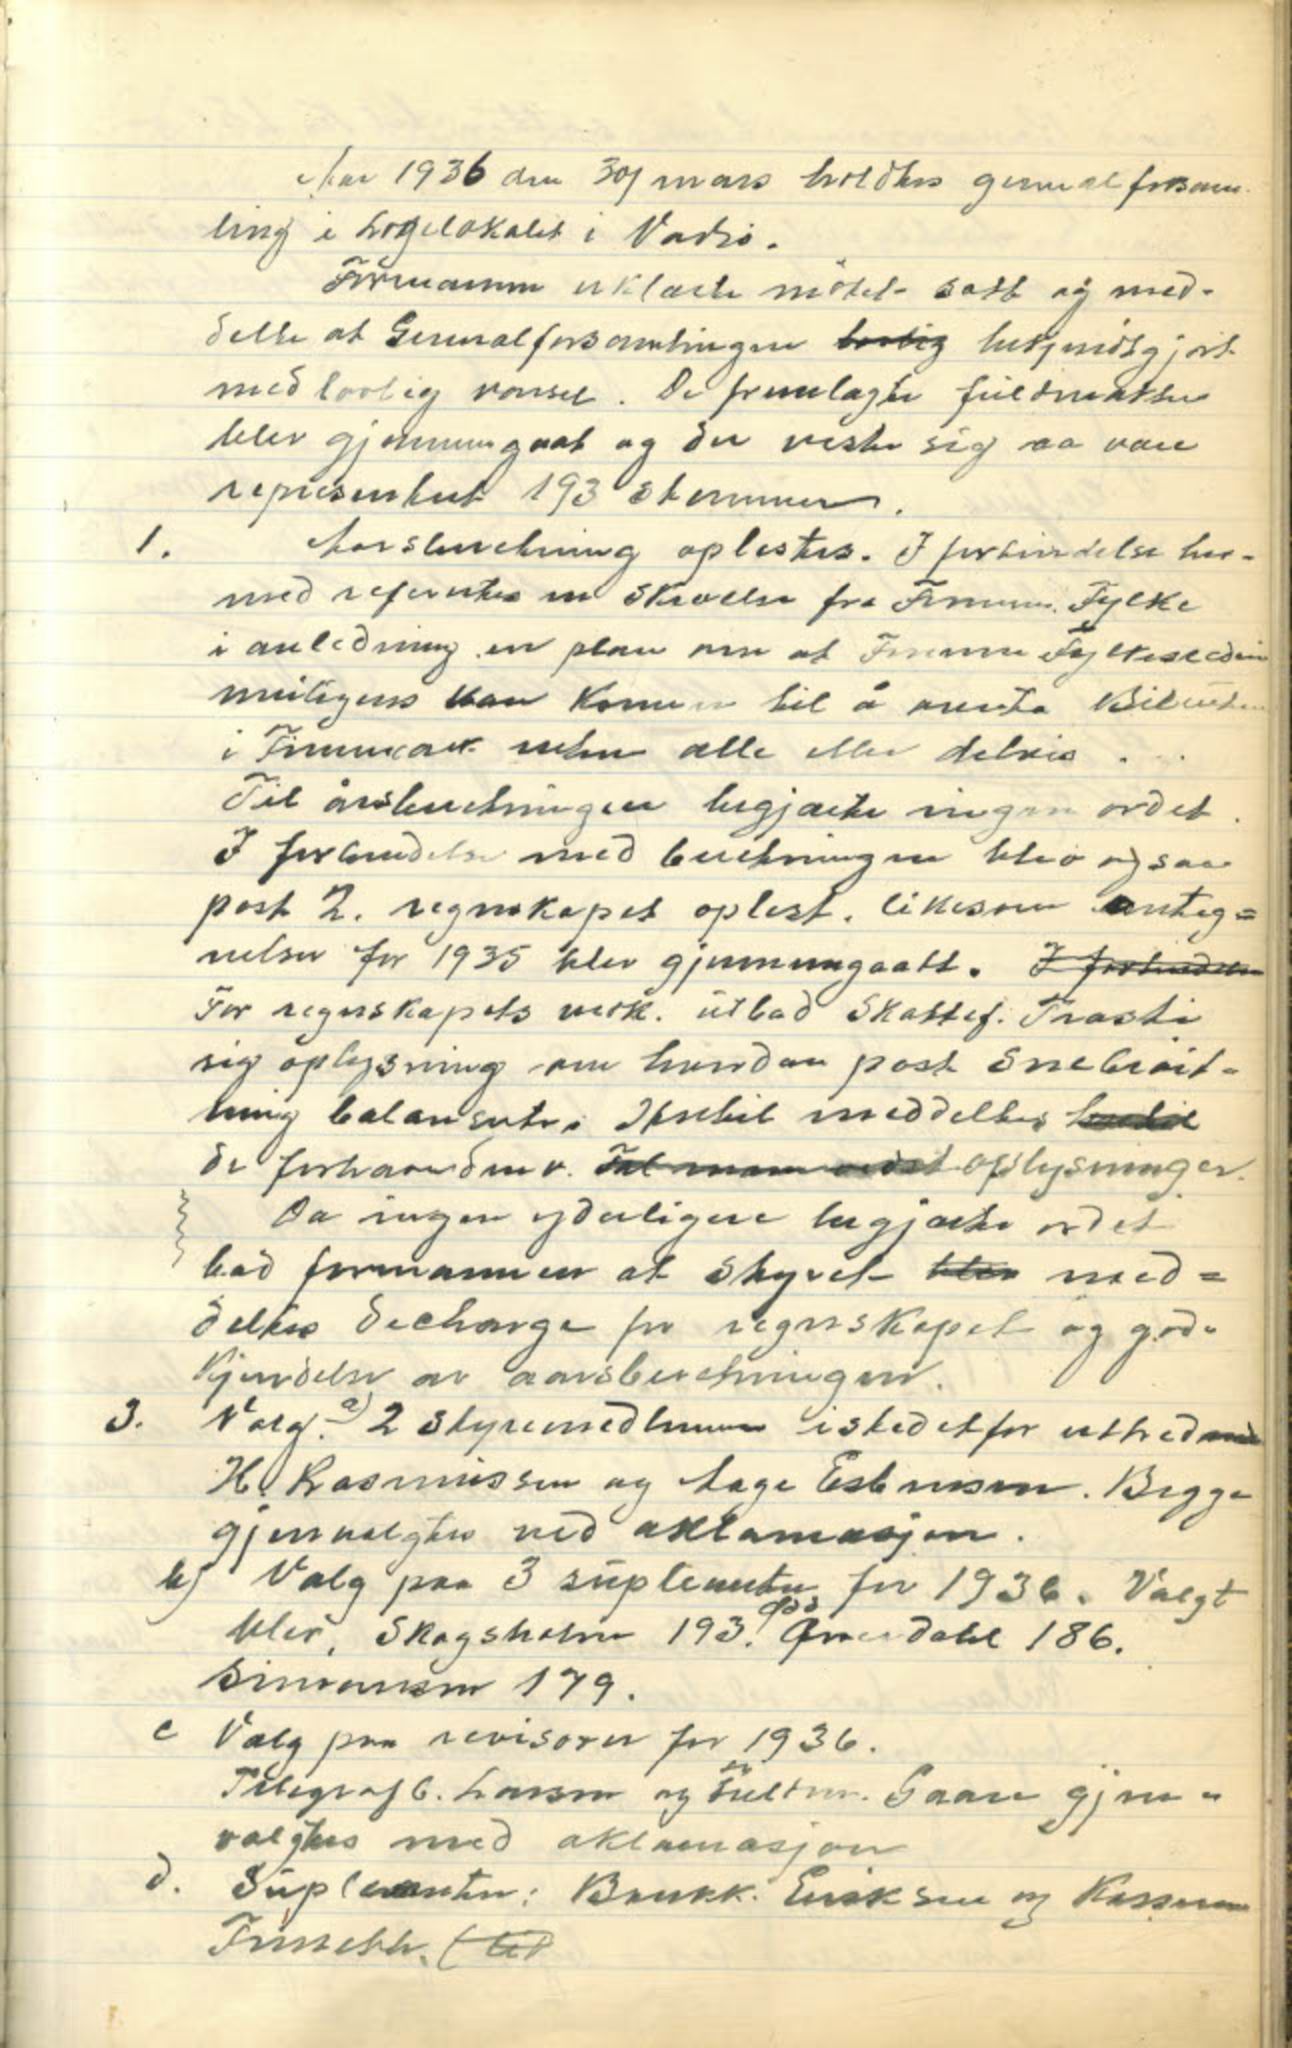 Aar 1936 den 30/ mars holdtes generalforsam-
ling i Logelokalet i Vadsö.
Formannen erklærte mötet satt og med-
delte at Generalforsamlingen lovlig bekjendtgjort
med lovlig varsel. De fremlagte fuldmakter
blev gjennemgaat og det viste sig aa være
representert 193 stemmer.
1. Aarsberetning oplestes. I forbindelse her-
med refertes en skrivelse fra Finnm. Fylke
i anledning en plan om at Finnm Fylkesrederi
muligens kan komme til å overta Bilruten
i Finnmark enten alle eller delvis.
Til årsberetningen begjærte ingen ordet.
I forbindelse med beretningen blev ogsaa
post 2. regnskapet oplest. likesom anteg=
nelser for 1935 blev gjennemgaatt. I forbindelse
For regnskapets vedk. utbad Skattef. Trasti
sig oplysning om hvordan post Snebröit-
ning balansertes. Hertil meddeltes hertil
de forhaandenv. oplysninger.
Da ingen yderligere begjærte ordet
bad formannen at styret blev med=
deltes decharge for regnskapet og god-
kjendelse av aarsberetningen.
3. Valg. a) 2 styremedlemmer istedetfor uttredende
H. Rasmussen og Aage Esbensen. Begge
gjenvalgtes ved aklamasjon.
b) Valg paa 3 suplementer for 1936. Valgt
blev, Skogsholm 193. Grendahl 186.
Simonsen 179.
c Valg paa revisorer for 1936.
Telegrafb. Larsen og Gaare gjen-
valgtes med aklamasjon
d. Suplementer: Bankk. Eriksen og Kasserer